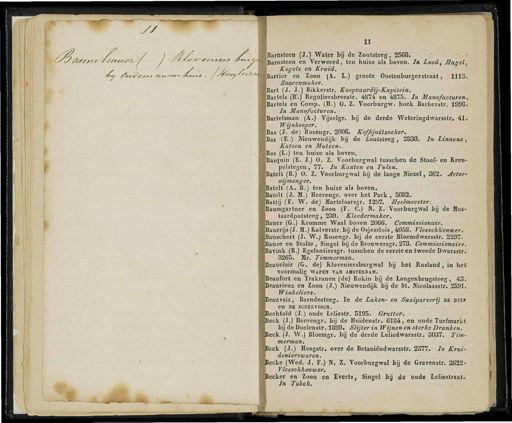 11
Baumhauer (—) Kloveniers burg
by Oudemannenhuis.
11
Barnsteen (J.) Water bij de Zoutsteeg, 2568.
Barnsteen en Verweerd, ten huize als boven. In Lood, Hagel,
Kogels en Kruid.
Barrier en Zoon (A. L.) groote Oostenburgerstraat, 1113.
Bart (J. J.) Bikkerstr. Koopvaardij-Kapitein.
Bartels (R.) Reguliersbreestr. 4874 en 4875. In Manufacturen.
Bartels en Comp. (H.) O. Z. Voorburgw. hoek Barberstr. 1898.
In Manufacturen.
Bartelsman (A.) Vijzelgr. bij de derde Weteringdwarsstr. 41.
Wijnkooper.
Bas (J. de) Rozengr. 2006. Koffijuitzoeker.
Bas (E.) Nieuwendijk bij de Zoutsteeg, 2830. In Linnens,
Katoen en Mutsen.
Bas (L.) ten huize als boven.
Basquin (E. J.) O. Z. Voorburgwal tusschen de Stoof- en Kreu-
pelsteegen, 77. In Kanten en Tulen.
Batelt (B.) O. Z. Voorburgwal bij de lange Niezel, 362. Actze-
Batelt (A. B.) ten huize als boven.
Batelt (J. M.) Heerengr. over het Park, 5082.
Battij (F. W. de) Martelaarsgr. 1297. Heelmeester.
Baumgartner en Zoon (F. C.) N. Z. Voorburgwal bij de Mos-
taardpotsteeg, 239. Kleedermaker.
Bauer (G.) Kromme Waal boven 2066. Commissionair.
Bauerijs (J. M.) Kalverstr. bij de Osjessluis, 4058. Vleeschhouwer.
Bauschert (J. W.) Rozengr. bij de eerste Bloemdwarsstr. 2297.
Bause en Stolte, Singel bij de Brouwersgr. 273. Commissionairs.
Bavink (B.) Egelantiersgr. tusschen de eerste en tweede Dwarsstr.
3265. Mr. Timmerman.
Beauclair (G. de) Kloveniersburgwal bij het Rusland, in het
voormalig WAPEN VAN AMSTERDAM.
Beaufort en Trakranen (de) Rokin bij de Langenbrugsteeg, 43.
Beaurieux en Zoon (J.) Nieuwendijk bij de St. Nicolaasstr. 2591.
Winkeliers.
Beauvaix, Barndesteeg. In de Laken- en Saaijververij DE DUIF
en DE SCHELVISCH.
Bechtold (J.) oude Leliestr. 5195. Grutter.
Beck (J.) Heerengr. bij de Huidenstr. 6184, en oude Turfmarkt
bij de Doelenstr. 1899. Slijter in Wijnen en sterke Dranken.
Beek (J. W.) Bloemgr. bij de derde Leliedwarsstr. 3037. Tim-
merman.
Beek (J.) Hoogstr. over de Betaniëndwarsstr. 2577. In Krui-
denierswaren.
Beeke (Wed. J. F.) N. Z. Voorburgwal bij de Gravenstr. 2622.
Vleeschhouwer.
Beeker en Zoon en Everts, Singel bij de oude Leliestraat.
In Tabak.